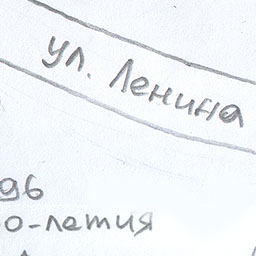 ул. Ленина
96
о-летия